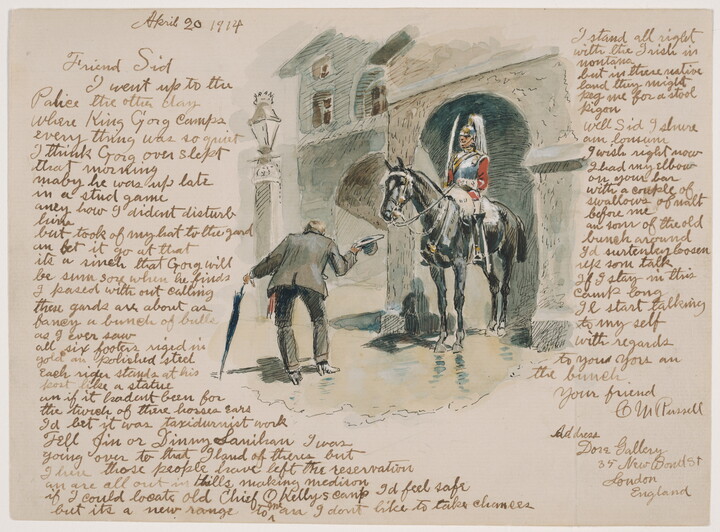 April 20 1914
Friend Sid
I went up to the
Palice the other day
where King Gorg camps
every thing was so quiet
I think Gorg over slept
that morning
maby he was up late
in a stud game
aney how I dident disturb
him
but took of my hat to the gard
an let it go at that
its a sinch that Gorg will
be sum sore when he finds
I pased with out calling
thes gards are about as
fancy a bunch of bulls
as I ever saw
all six footers riged in
gold an polished steel
each rider stands at his
post like a statue
an if it hadent been for
the twich of there horses ears
I'd bet it was taxidurmist work
Tell Jim or Dinny Lanihan I was
going over to that Island of theres but
I here those people have left the reservation
an are all out in hills making medison
if I could locate old Chief O Kellys camp I'd feel safe
but its a new range to me an I dont like to take chances
I stand all right
with the Irish in
montana
but in there native
land they might
tag me for a stool
pigon
well Sid I shure
am lonsum
I wish right now
I had my elbow
on your bar
with a couple of
swallows of malt
before me
an som of the old
bunch around
I'd surtenly loosen
up som talk
If I stay in this
camp long
I'l start talking
to my self
with regards
to you an
the bunch
Your friend
C M Russell
Address
Dore Gallery
35 New Bond St
London
England